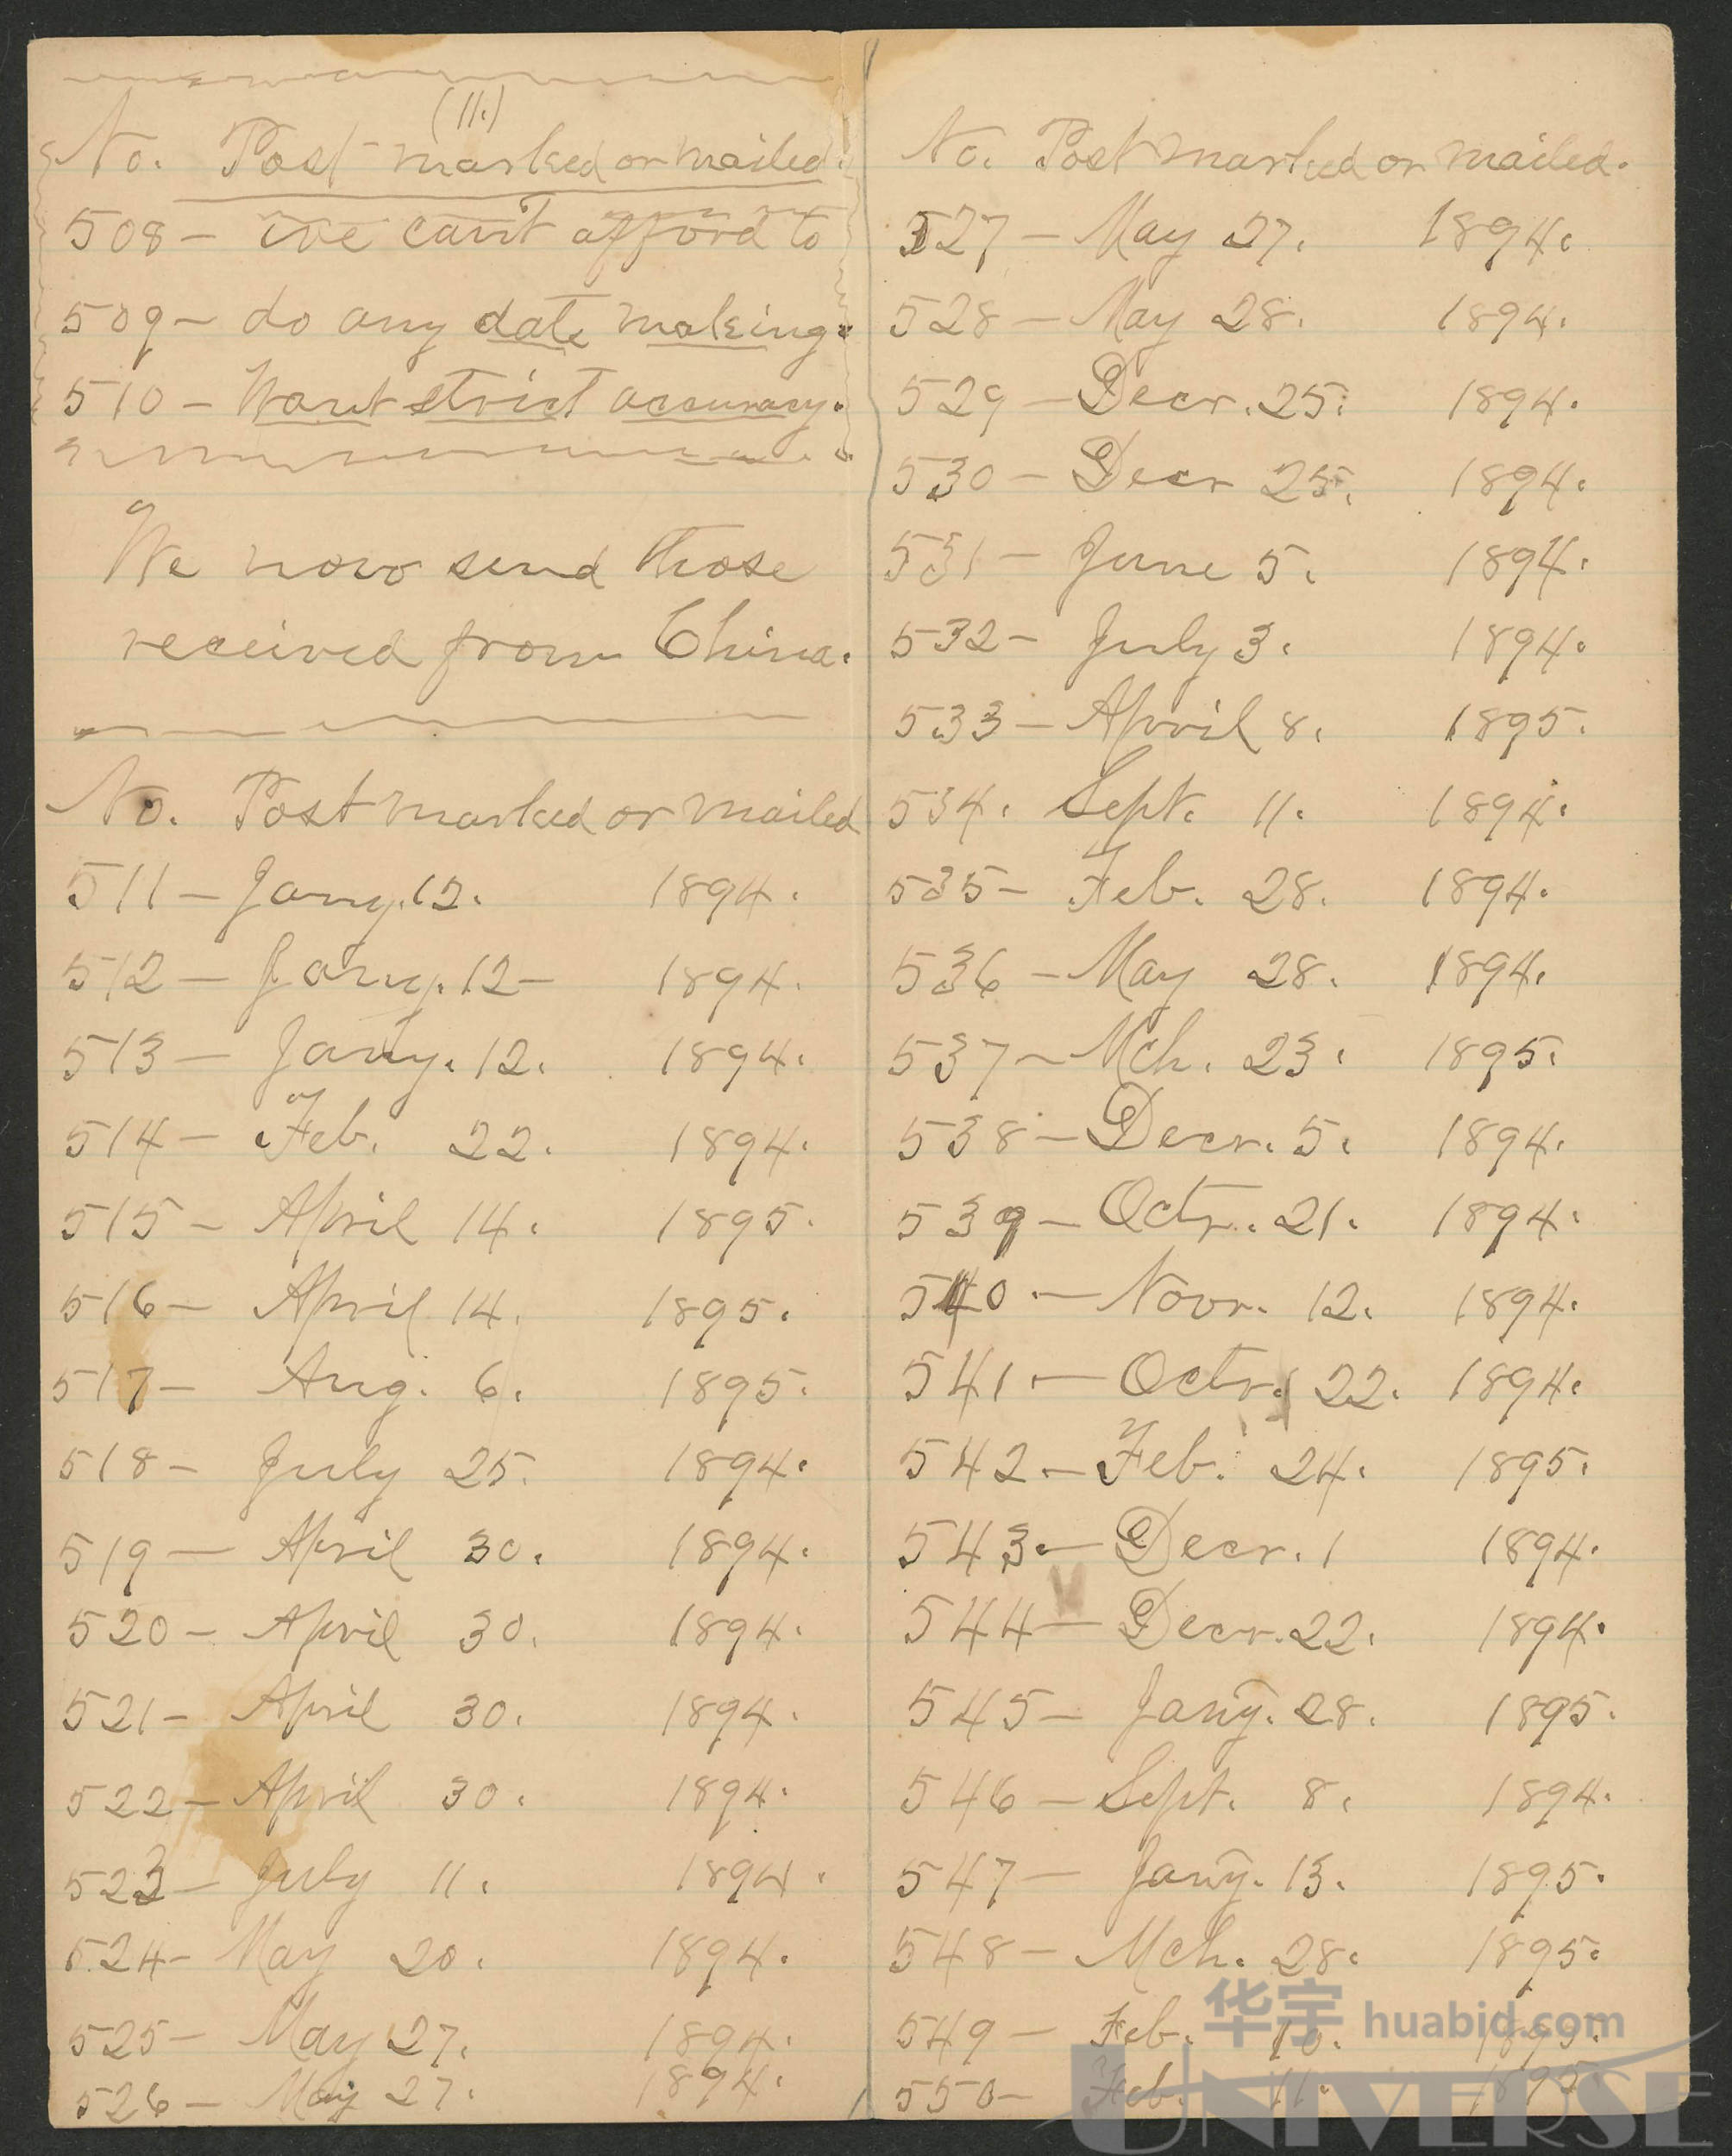 (11.)
No. Post marked or mailed.
508 - we can't afford to
509 - do any date making.
510 - Want strict accuracy.
We now send those
received from China.
No. Post marked or mailed
511 - Jany. 12. 1894.
512 - Jany. 12 - 1894.
513 - Jany. 12. 1894.
514 - Feb. 22. 1894.
515 - April 14. 1895.
516 - April 14. 1895.
517 - Aug. 6. 1895.
518 - July 25. 1894.
519 - April 30. 1894.
520 - April 30. 1894.
521 - April 30. 1894.
522 - April 30. 1894.
523 - July 11. 1894.
524 - May 20. 1894.
525 - May 27. 1894.
526 - May 27. 1894.
No. Post marked or mailed.
527 - May 27. 1894.
528 - May 28. 1894.
529 - Decr. 25. 1894.
530 - Decr 25. 1894.
531 - June 5. 1894.
532 - July 3. 1894.
533 - April 8. 1895.
534. Sept. 11. 1894.
535 - Feb. 28. 1894.
536 - May 28. 1894.
537 - Mch. 23. 1895.
538 - Decr. 5. 1894.
539 - Octr. 21. 1894.
540. - Novr. 12. 1894.
541. - Octr. 22. 1894.
542. - Feb. 24. 1895.
543. - Decr. 1 1894.
544 - Decr. 22. 1894.
545 - Jany. 28. 1895.
546 - Sept. 8. 1894.
547 - Jany. 13. 1895.
548 - Mch. 28. 1895.
549 - Feb. 10. 1895.
550 - Feb. 11. 1895.
华宇 huabid.com
UNIVERSE